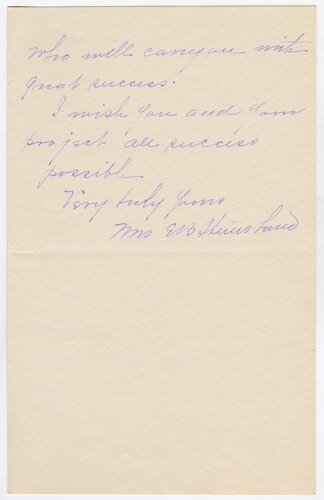 who will carry on with
great success.
I wish you and your
project all success
possible
Very truly yours
Mrs E B